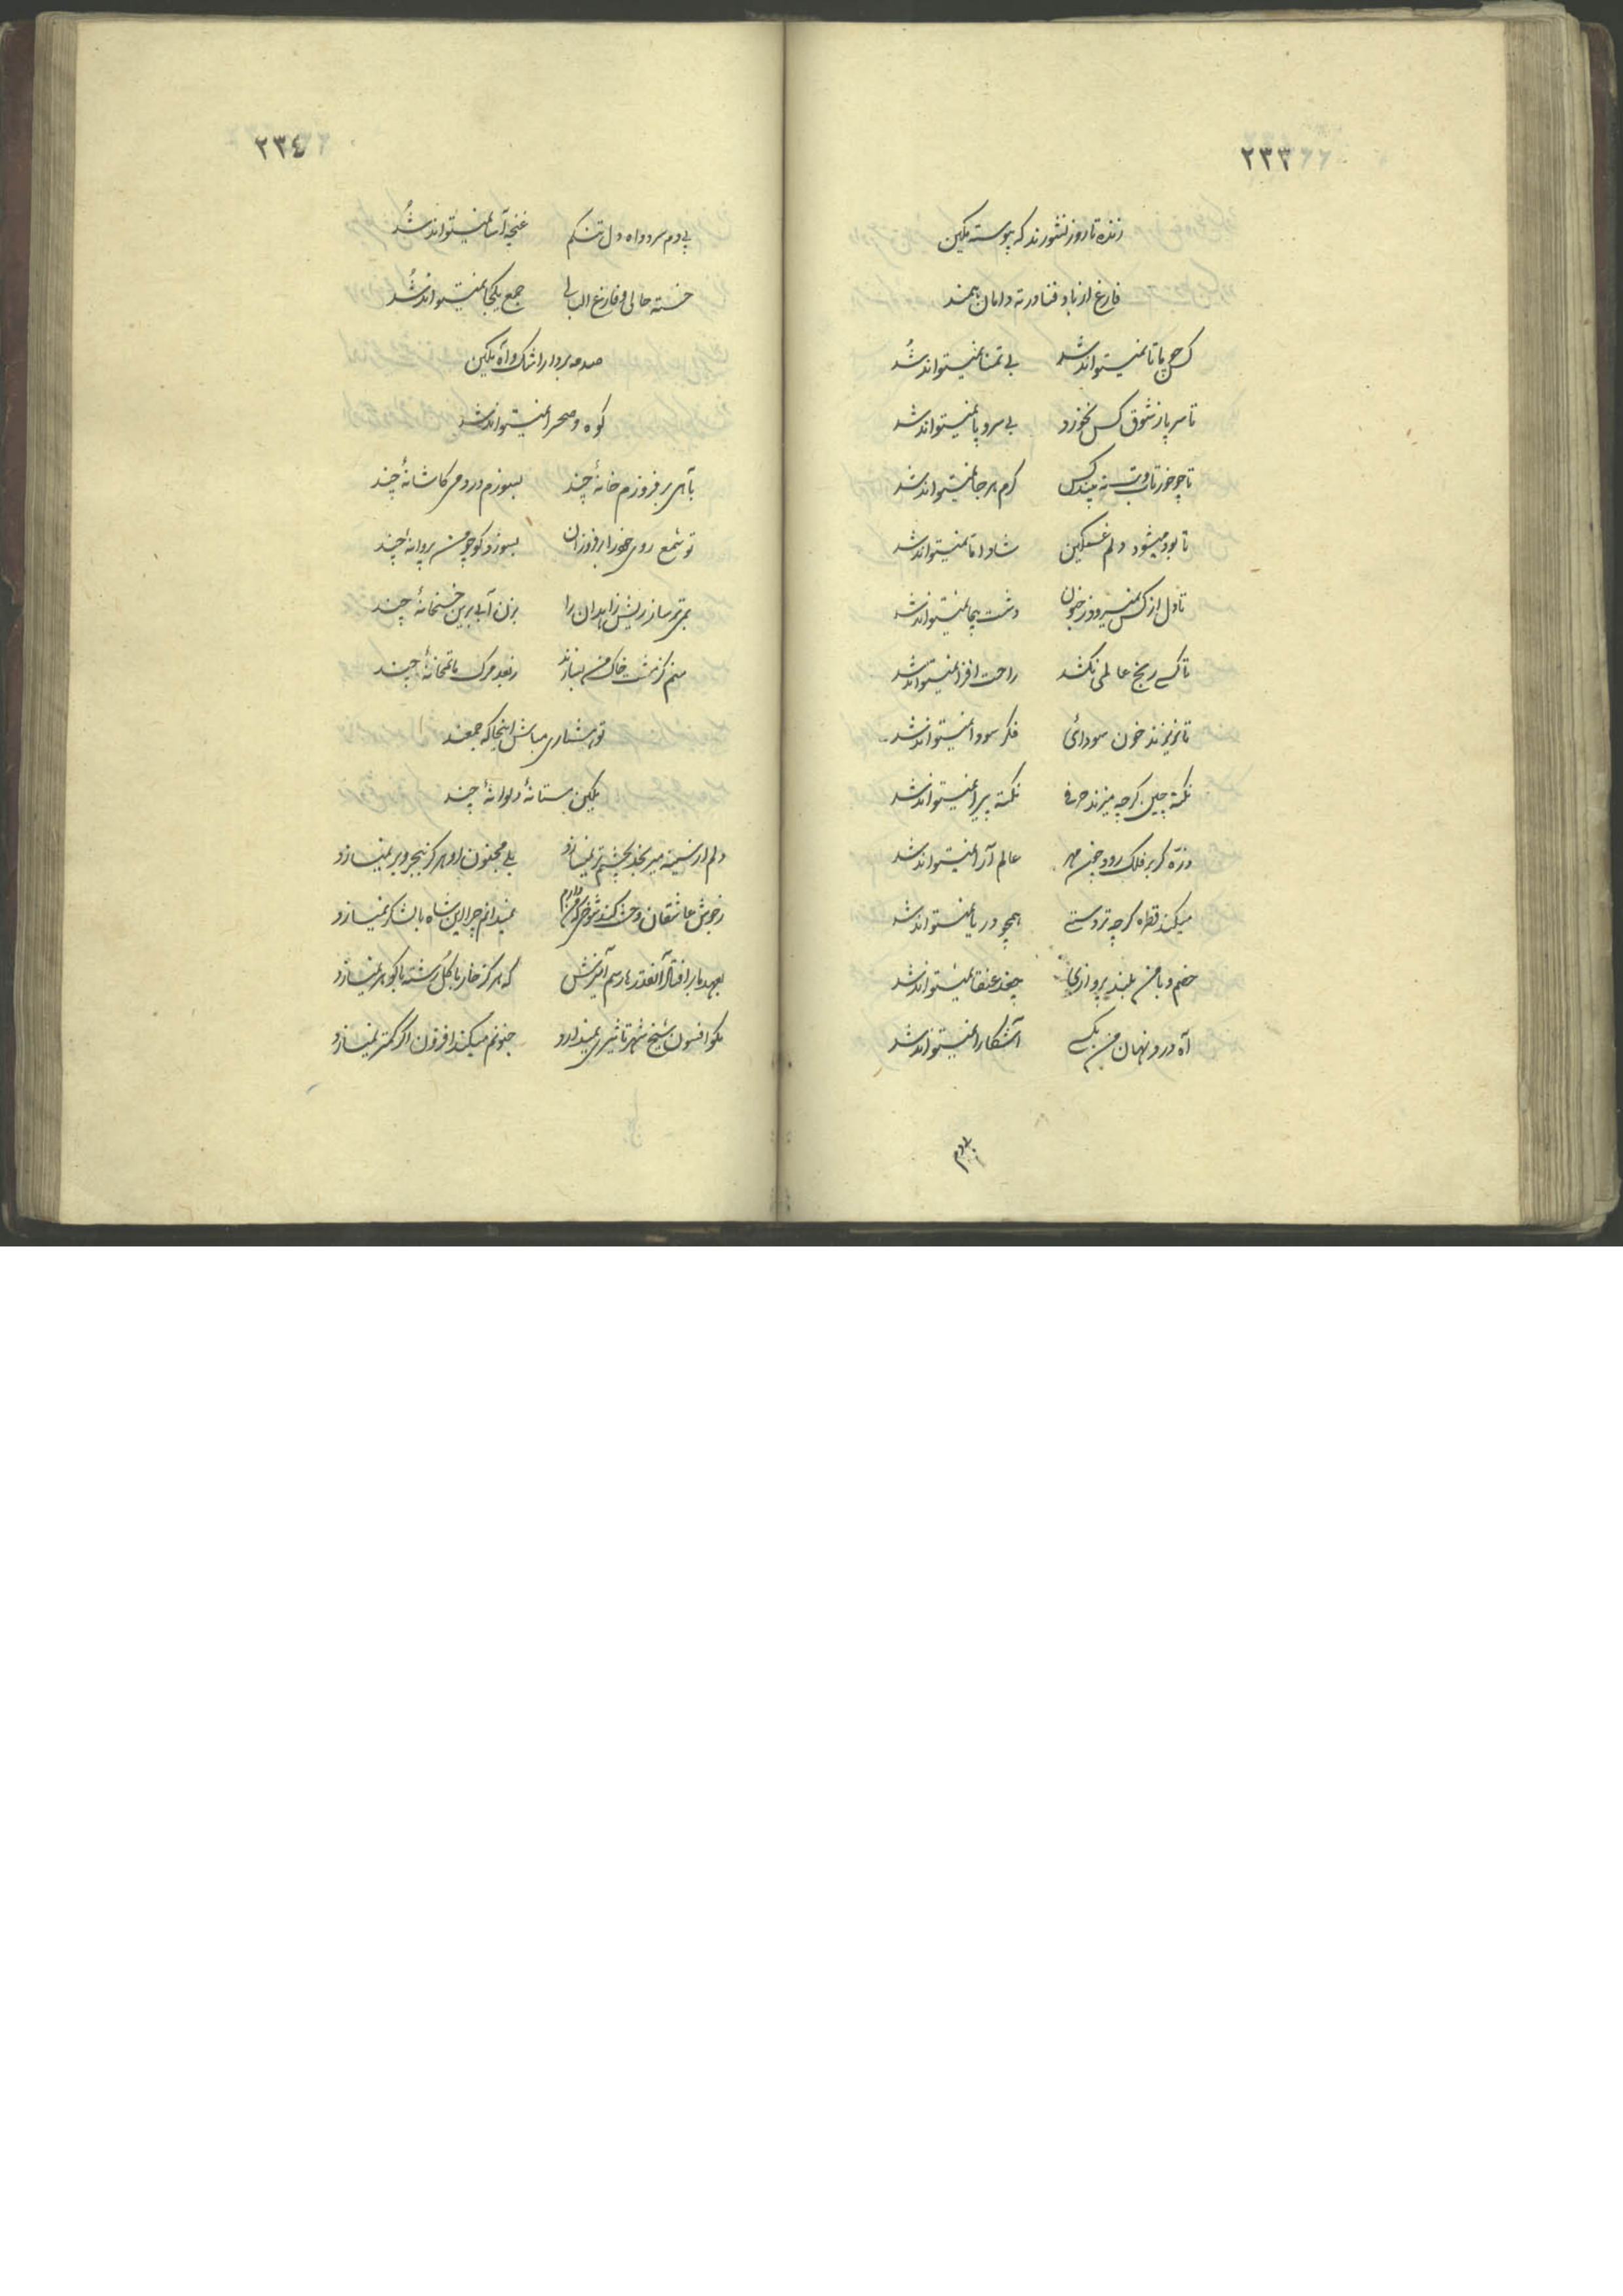 ٢٣٣
زنده تا روز نشورند که پیوسته مکین
فارغ از باد فنا در ته دامان همند
کس چو ما تا نمیتواند شد بی تمنا نمیتواند شد
تا سر پا ز شوق کس نخورد بی سر و پا نمیتواند شد
تا چو خور تاب و تب نه بیند کس کرم هر جا نمیتواند شد
تا بود میشود دلم غمکین شاد اما نمیتواند شد
تا دل از کس نمیرود ز جنون دشت پیما نمیتواند شد
تا کسی رنج عالمی نکشد راحت افزا نمیتواند شد
تا نریزند خون سودائی فکر سودا نمیتواند شد
نکته چین کرچه میزند حرفی نکته پیرا نمیتواند شد
ذره کر بر فلک رود چون مهر عالم آرا نمیتواند شد
میکند قطره کرچه تردستی همچو دریا نمیتواند شد
خصم و با من بلند پروازی چغد عنقا نمیتواند شد
آه درد نهان من بکسی آشکارا نمیتواند شد
بی دم
٢٣٤
بی دم سرد و آه دل تنکم غنچه آسا نمیتواند شد
خسته حالی و فارغ البالی جمع یکجا نمیتواند شد
صدمه بردار اشک و آه مکین
کوه و صحرا نمیتواند شد
بآهی بر فروزم خانهٔ چند بسوزم در دمی کاشانهٔ چند
تو شمع روی خود را بر فروزان بسوزد کو چو من پروانهٔ چند
بمی تر ساز ریش زاهدان را بزن آبی برین خسخانهٔ چند
منم کز خشت خاک من بسازند ز بعد مرک ماتمخانهٔ چند
تو هشیاری مباش اینجا که جمعند
مکین مستانهٔ دیوانهٔ چند
دلم از سینه میرنجد بچشم تر نمیسازد بلی مجنون او هرکز ببحر و بر نمیسازد
ز جوش عاشقان وحشت کند شوخی که من دارم نمیدانم چرا این شاه با لشکر نمیسازد
بعهد ما بر افتاد آنقدرها رسم آمیزش که هرکز خار با کل رشته با کوهر نمیسازد
مکو افسون شیخ شهر تاثیری نمیدارد جنونم میکند افزون اکر کمتر نمیسازد